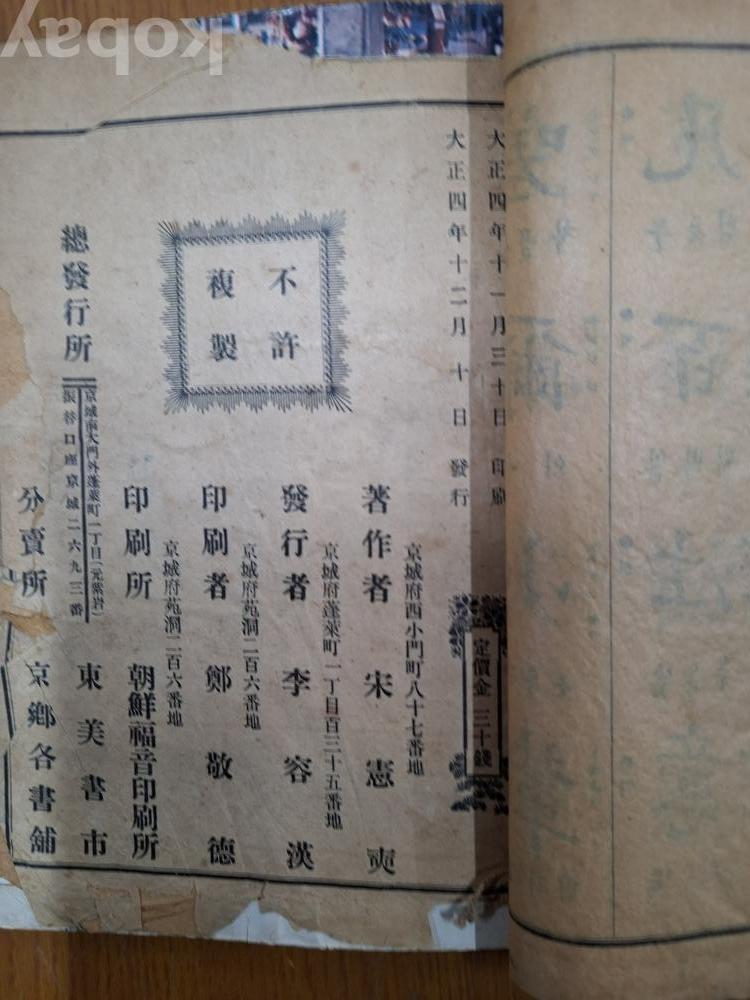 kobay
大正四年十一月三十日 印刷
大正四年十二月十日 發行
定價金 三十錢
不許
複製
京城府西小門町八十七番地
著作者 宋憲奭
京城府蓬萊町一丁目百三十五番地
發行者 李容漢
京城府苑洞二百六番地
印刷者 鄭敬德
京城府苑洞二百六番地
印刷所 朝鮮福音印刷所
總發行所
京城南大門外蓬萊町一丁目(元紫岩)
振替口座京城二六九三番
東美書市
分賣所 京鄕各書舖